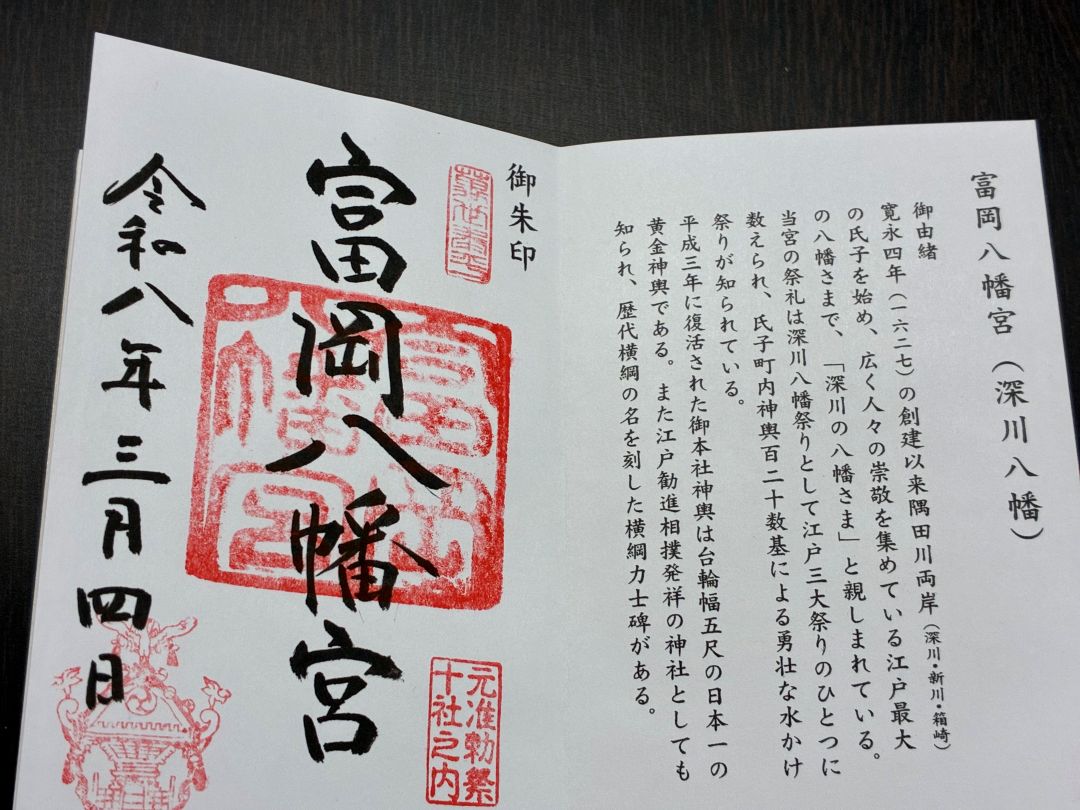 富岡八幡宮（深川八幡）
御由緒
寛永四年（一六二七）の創建以来隅田川両岸（深川・新川・箱崎）
の氏子を始め、広く人々の崇敬を集めている江戸最大
の八幡さまで、「深川の八幡さま」と親しまれている。
当宮の祭礼は深川八幡祭りとして江戸三大祭りのひとつに
数えられ、氏子町内神輿百二十数基による勇壮な水かけ
祭りが知られている。
平成三年に復活された御本社神輿は台輪幅五尺の日本一の
黄金神輿である。また江戸勧進相撲発祥の神社としても
知られ、歴代横綱の名を刻した横綱力士碑がある。
御朱印
元准勅祭
十社之内
富岡八幡宮
富岡
八幡宮
令和八年三月四日